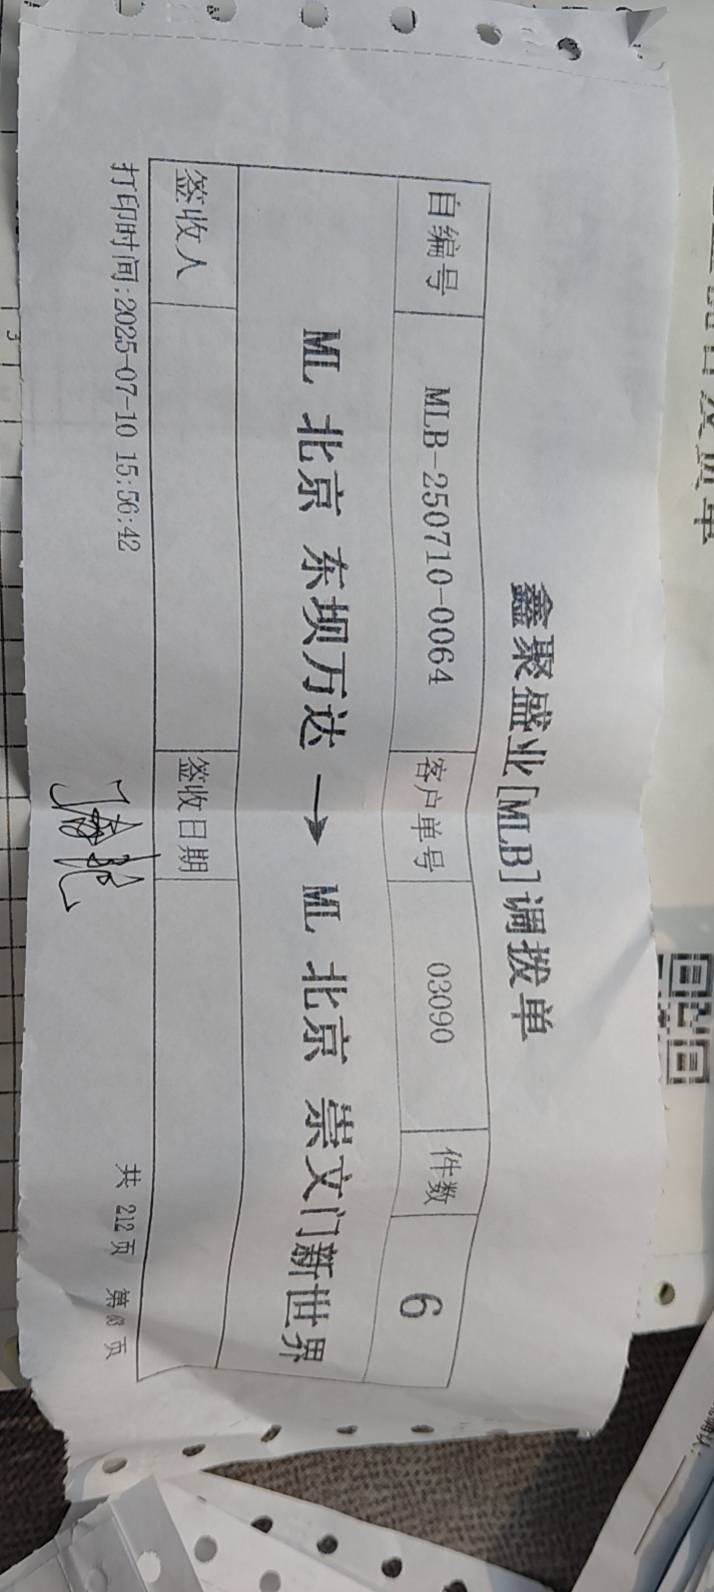 鑫聚盛业[MLB]调拨单
自编号 MLB-250710-0064 客户单号 03090 件数 6
ML 北京 东坝万达 → ML 北京 崇文门新世界
签收人 签收日期
打印时间:2025-07-10 15:56:42 共 212页 第 页